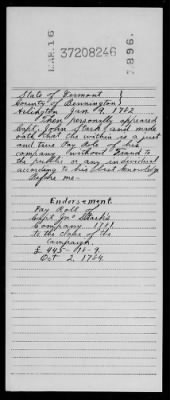 MAR. 16
37208246
7896.
State of Vermont }
County of Bennington }
Arlington Jan 9, 1782
Then personally appeared
Capt. John Stark and made
oath that the within is a just
and true Pay Role of his
company, without Fraud to
the public or any individual
according to his best knowledge
Before me-
Endorsment.
Pay Roll of
Capt Jno Stark's
Company 1781
to the close of the
Campaign.
£ 445 - 10 - 9.
Oct 2, 1784.